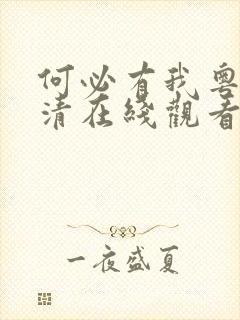 何必有我粵
清在綫觀看
一夜盛夏